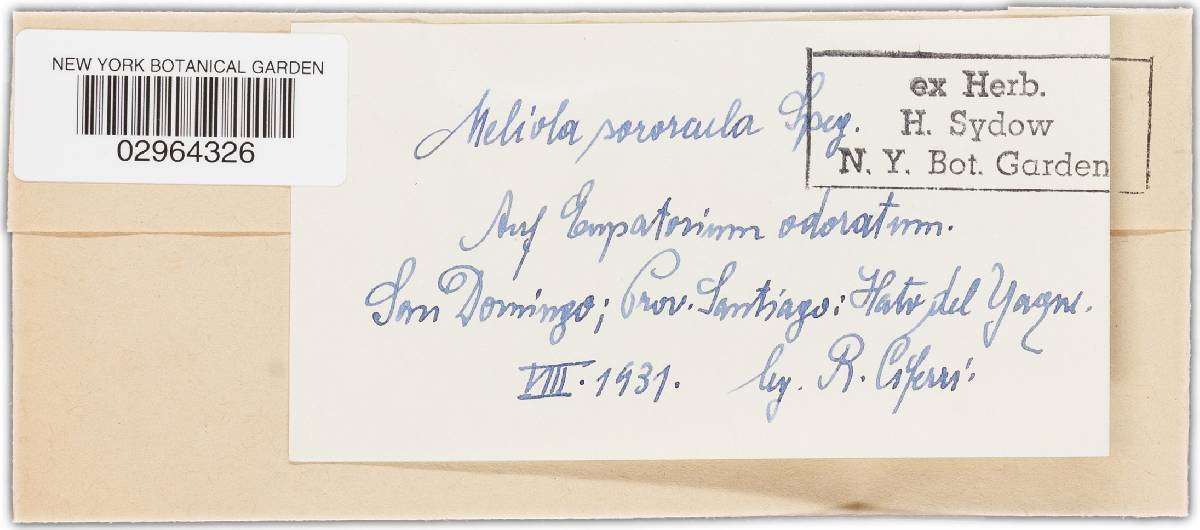 NEW YORK BOTANICAL GARDEN
02964326
ex Herb.
H. Sydow
N. Y. Bot. Garden
Meliola sororcula Speg.
Auf Eupatorium odoratum.
San Domingo; Prov. Santiago: Hato del Yaque.
VIII. 1931. leg. R. Ciferri.